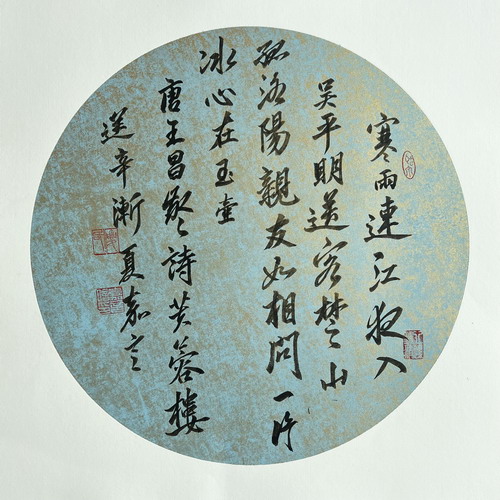 寒雨連江夜入
吴平明送客楚山
孤洛陽親友如相問一片
冰心在玉壶
唐王昌龄詩芙蓉樓
送辛漸 夏嘉言